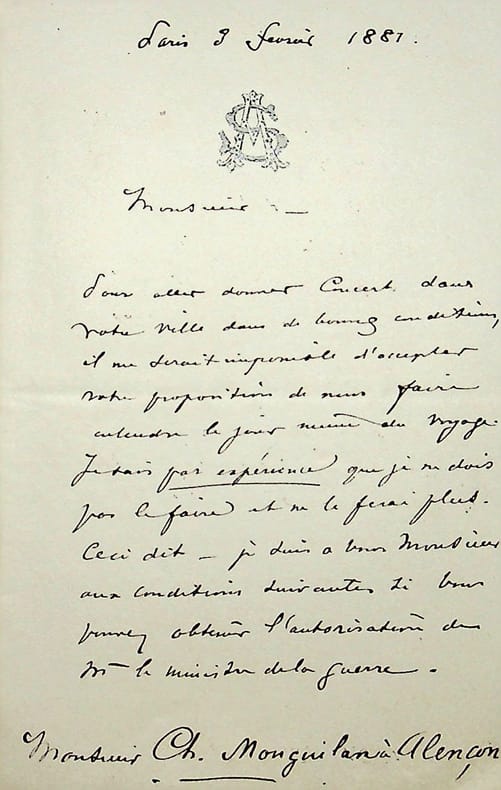 Paris 3 fevrier 1881.
AS
Monsieur –
Pour aller donner Concert dans
votre Ville dans de bonnes conditions,
il me serait impossible d'accepter
votre proposition de nous faire
entendre le jour même du voyage.
Je sais par expérience que je ne dois
pas le faire et ne le ferai plus.
Ceci dit – je suis a vous Monsieur
aux conditions suivantes si vous
pouvez obtenir l'autorisation de
Mr le ministre de la guerre.
Monsieur Ch. à Alençon